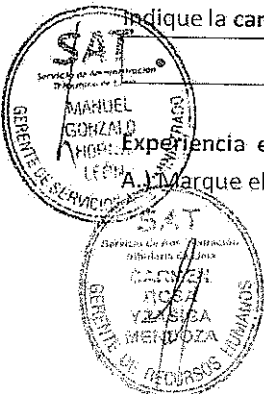 Indique la can
SAT
Servicio de Administración
Tributaria de Lima
MANUEL
GONZALO
LEÓN
GERENTE DE SERVICIOS
Experiencia e
A.) Marque el
SAT
Servicio de Administración
Tributaria de Lima
CARMEN
ROSA
YZASIGA
MENDOZA
GERENTE DE RECURSOS HUMANOS